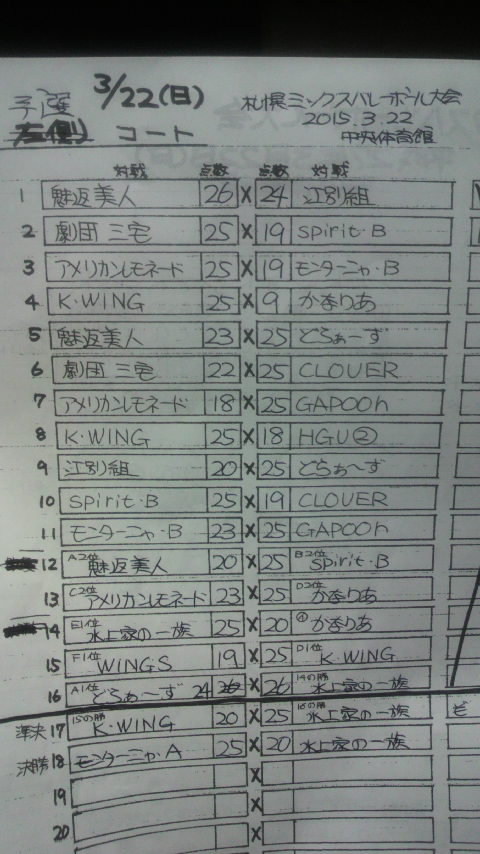 予選 3/22(日) 札幌ミックスバレーボール大会
左側 コート 2015.3.22
中央体育館
対戦 点数 点数 対戦
1 魅返美人 26 × 24 江別組
2 劇団 三宅 25 × 19 spirit・B
3 アメリカンレモネード 25 × 19 モンターニャ・B
4 K・WING 25 × 9 かなりあ
5 魅返美人 23 × 25 どらぁーず
6 劇団 三宅 22 × 25 CLOVER
7 アメリカンレモネード 18 × 25 GAPOOn
8 K・WING 25 × 18 HGU②
9 江別組 20 × 25 どらぁ〜ず
10 spirit・B 25 × 19 CLOVER
11 モンターニャ・B 23 × 25 GAPOOn
12 A2位 魅返美人 20 × 25 B2位 spirit・B
13 C2位 アメリカンレモネード 23 × 25 D2位 かなりあ
14 E1位 水上家の一族 25 × 20 ④ かなりあ
15 F1位 WINGS 19 × 25 D1位 K・WING
16 A1位 どらぁ〜ず 24 × 26 14の勝 水上家の一族
準決 17 15の勝 K・WING 20 × 25 16の勝 水上家の一族 ど
決勝 18 モンターニャ・A 25 × 20 水上家の一族
19 ×
20 ×